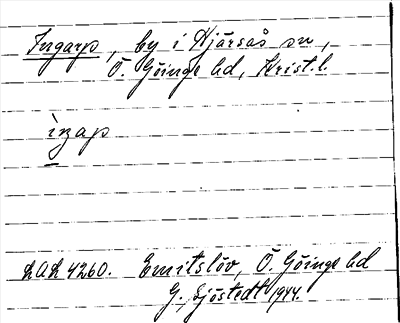 Ingarp, by i Hjärsås sn,
Ö. Göinge hd, Krist. l.
ìŋap
LAL 4260. Emitslöv, Ö. Göinge hd
G. Sjöstedt 1944.